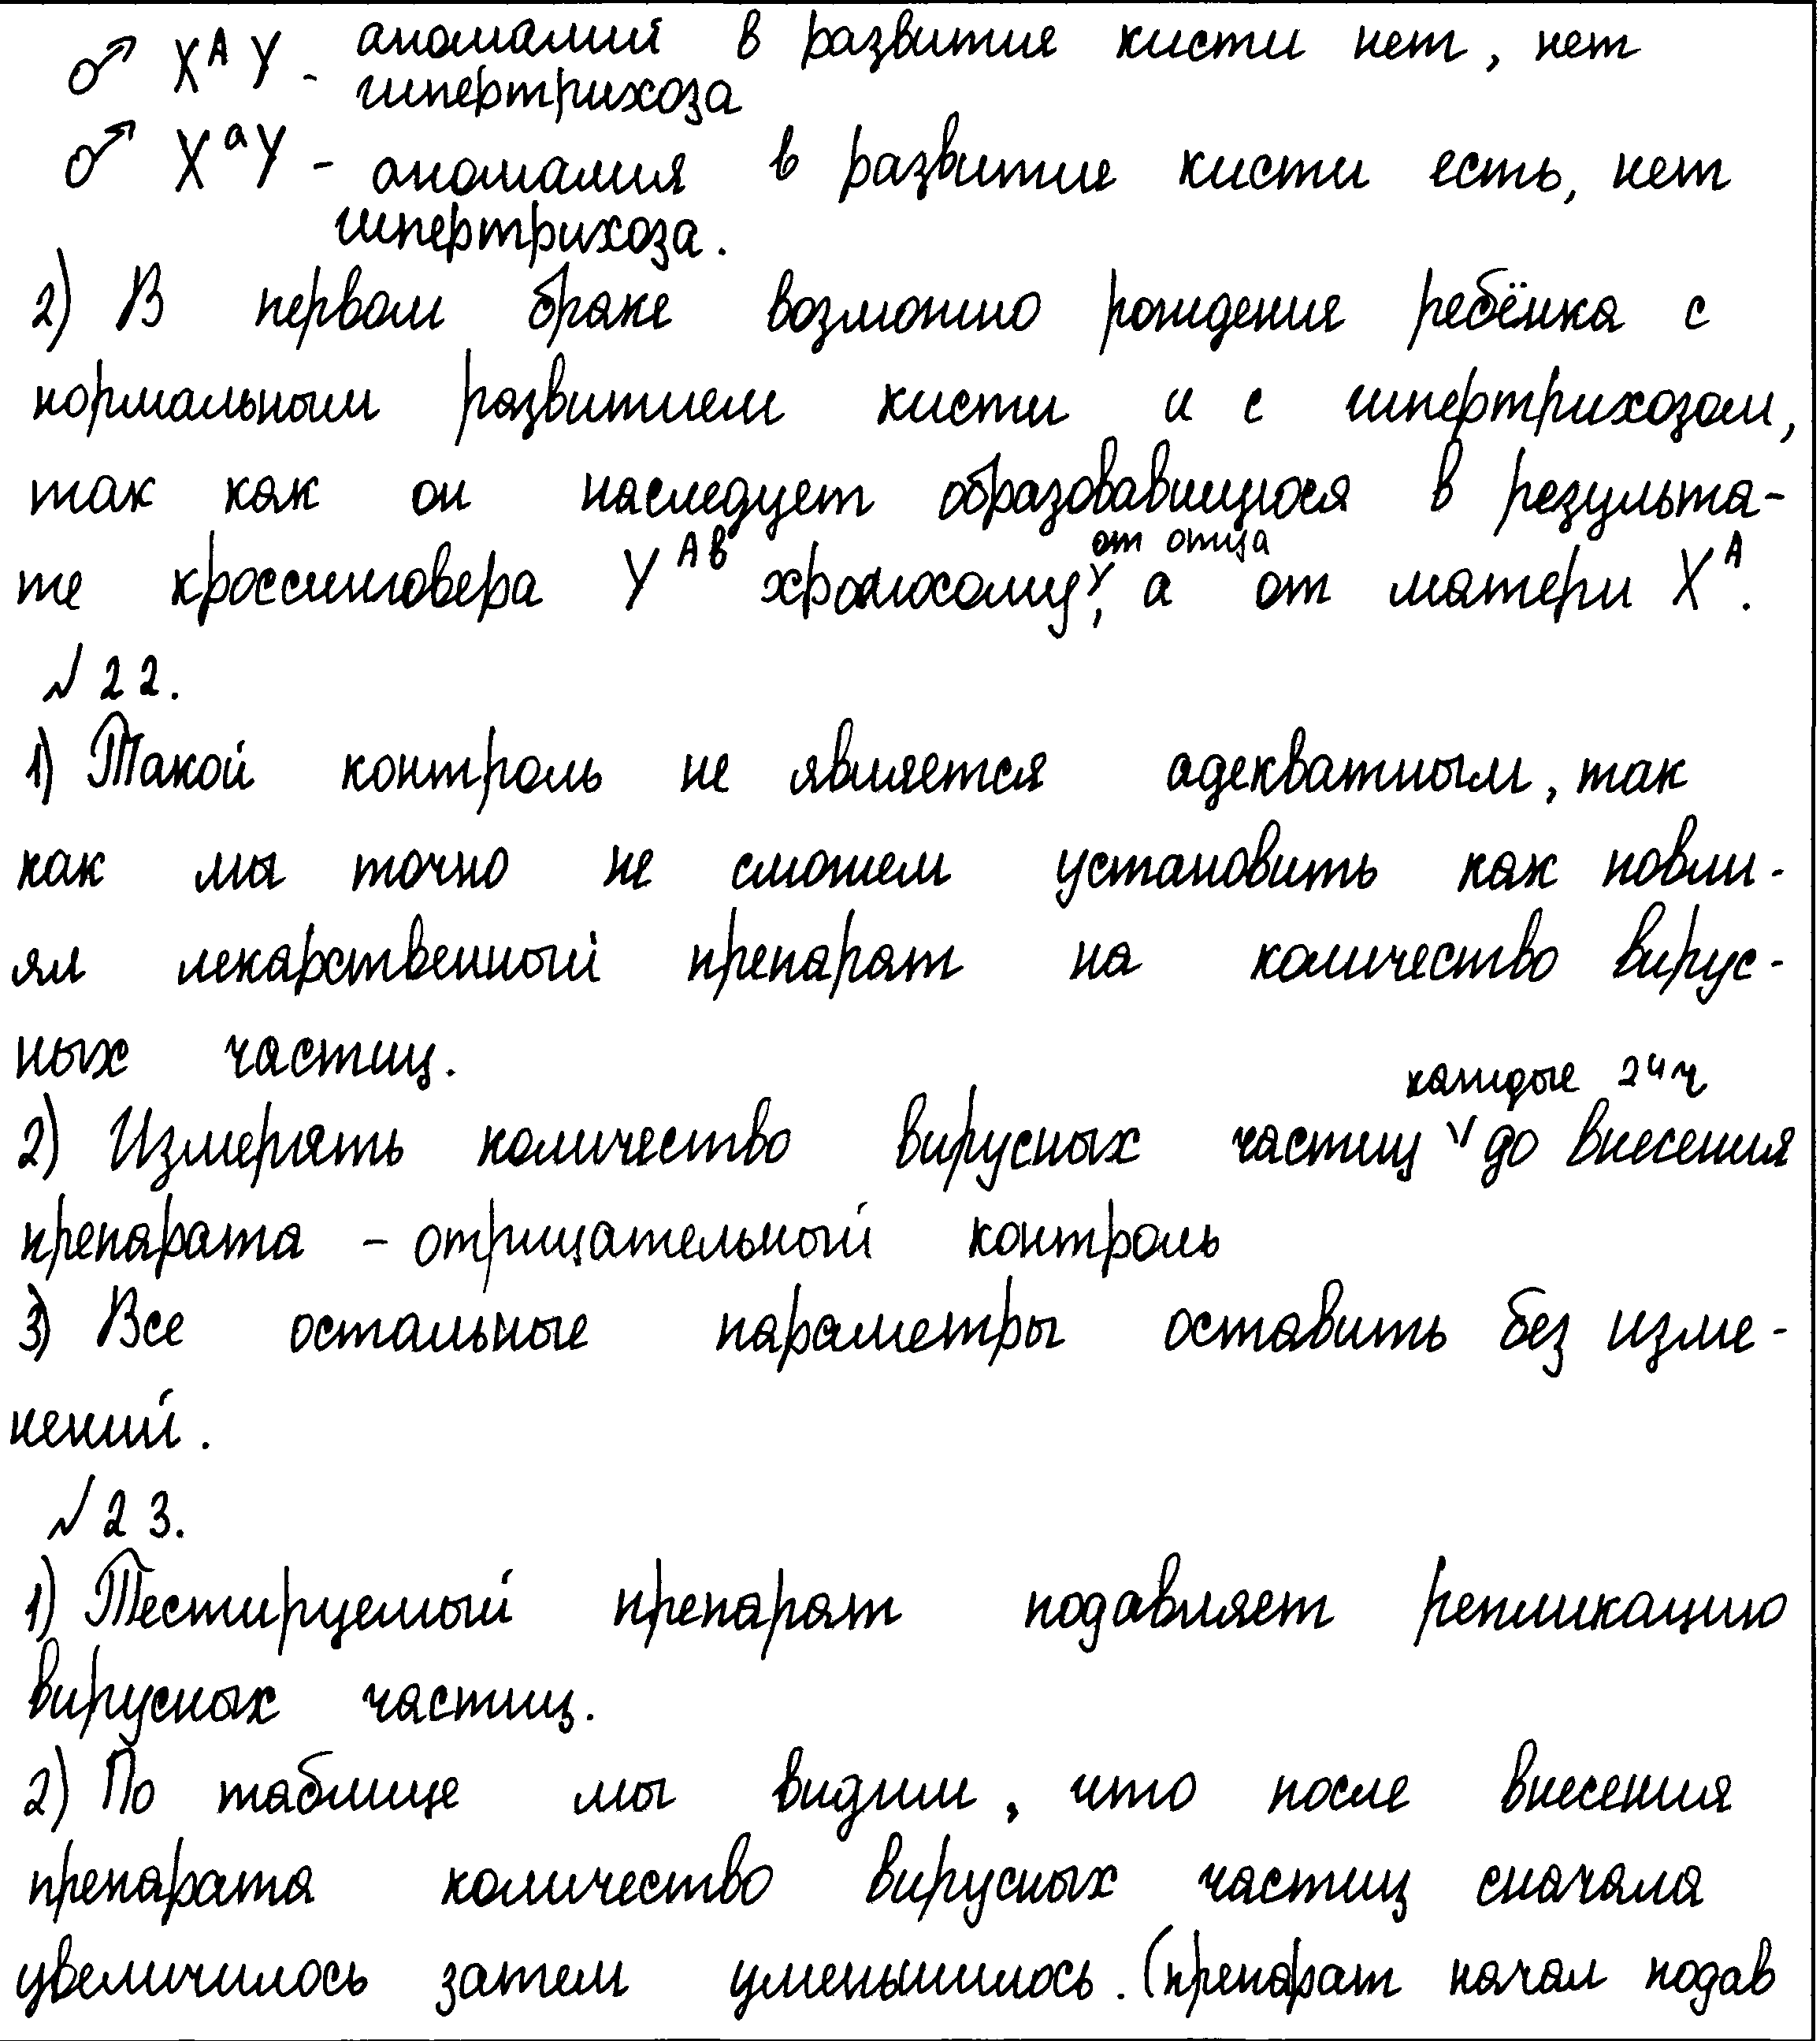 ♂ XᴬY - аномалия в развитие кисти нет, нет
гипертрихоза
♂ XᵃY - аномалия в развитие кисти есть, нет
гипертрихоза.
2) В первом браке возможно рождения ребёнка с
нормальным развитием кисти и с гипертрихозом,
так как он наследует образовавшуюся в результа-
те кроссинговера Yᴬᴮ хромосому от отца, а от матери Xᴬ.
№22.
1) Такой контроль не является адекватным, так
как мы точно не сможем установить как повли-
ял лекарственный препарат на количество вирус-
ных частиц.
2) Измерять количество вирусных частиц каждые 24ч до внесения
препарата - отрицательный контроль
3) Все остальные параметры оставить без изме-
нений.
№23.
1) Тестируемый препарат подавляет репликацию
вирусных частиц.
2) По таблице мы видим, что после внесения
препарата количество вирусных частиц сначала
увеличилось затем уменьшилось. (препарат начал подав